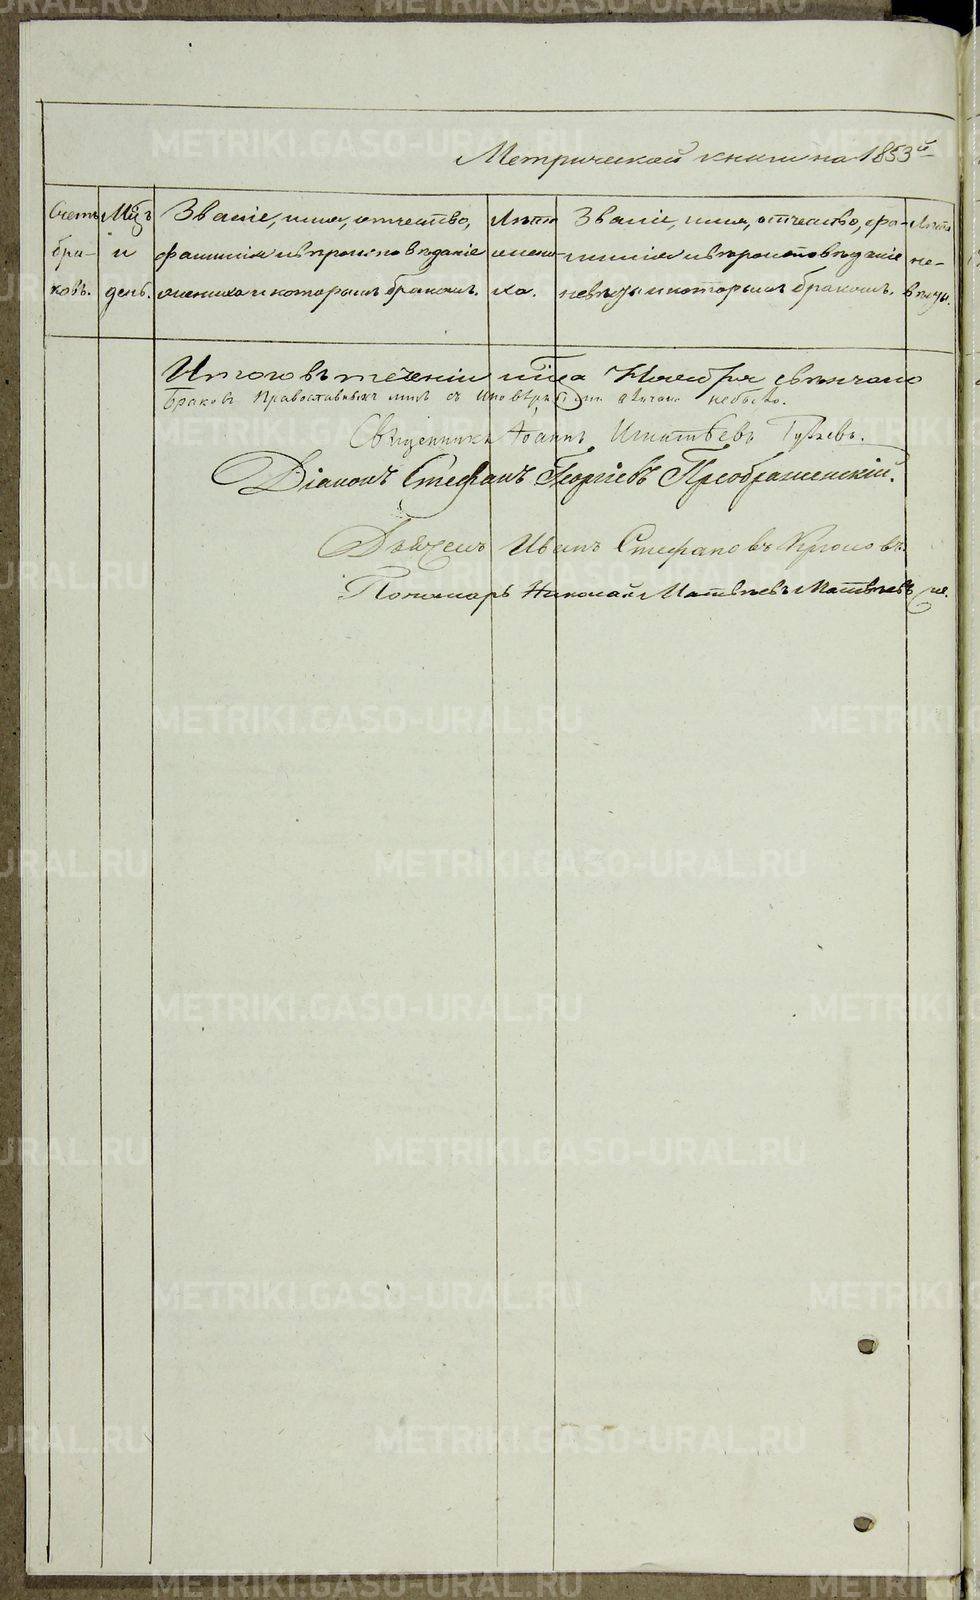 Метрической книги на 1853й
Счетъ браковъ.
Мцъ и день.
Званіе, имя, отчество, фамилія и вѣроисповѣданіе жениха и которымъ бракомъ.
Лѣта жениха.
Званіе, имя, отчество, фамилія и вѣроисповѣданіе невѣсты и которымъ бракомъ.
Лѣта невѣсты.
Итого въ теченіи мсца Ноября свѣнчано
браковъ православныхъ лицъ съ иновѣрными вѣнчано небыло.
Священникъ Іоаннъ Игнатьевъ
Діаконъ Стефанъ Георгіевъ Преображенскій.
Дьячекъ Иванъ Стефановъ Крюковъ.
Пономарь Николай Матвѣевъ Матвѣевъ
METRIKI.GASO-URAL.RU